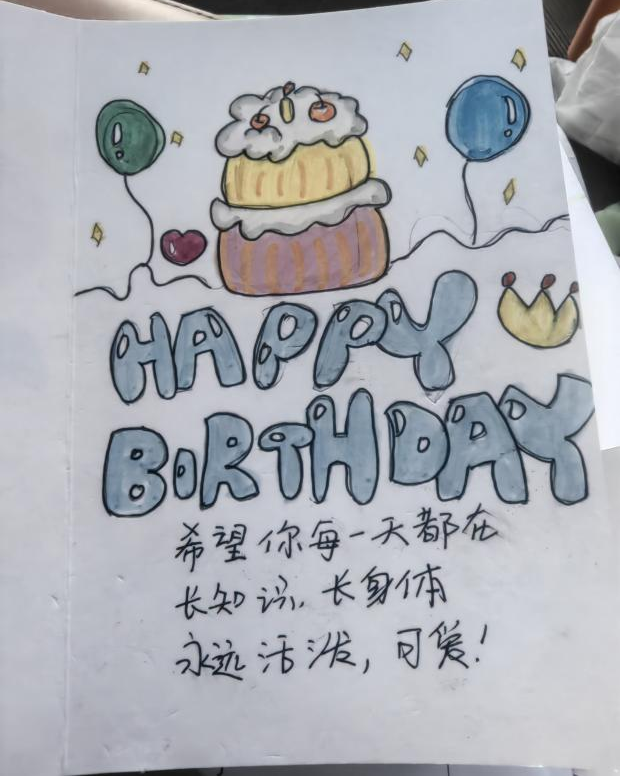 HAPPY
BIRTHDAY
希望你每一天都在
长知识、长身体
永远活泼，可爱！